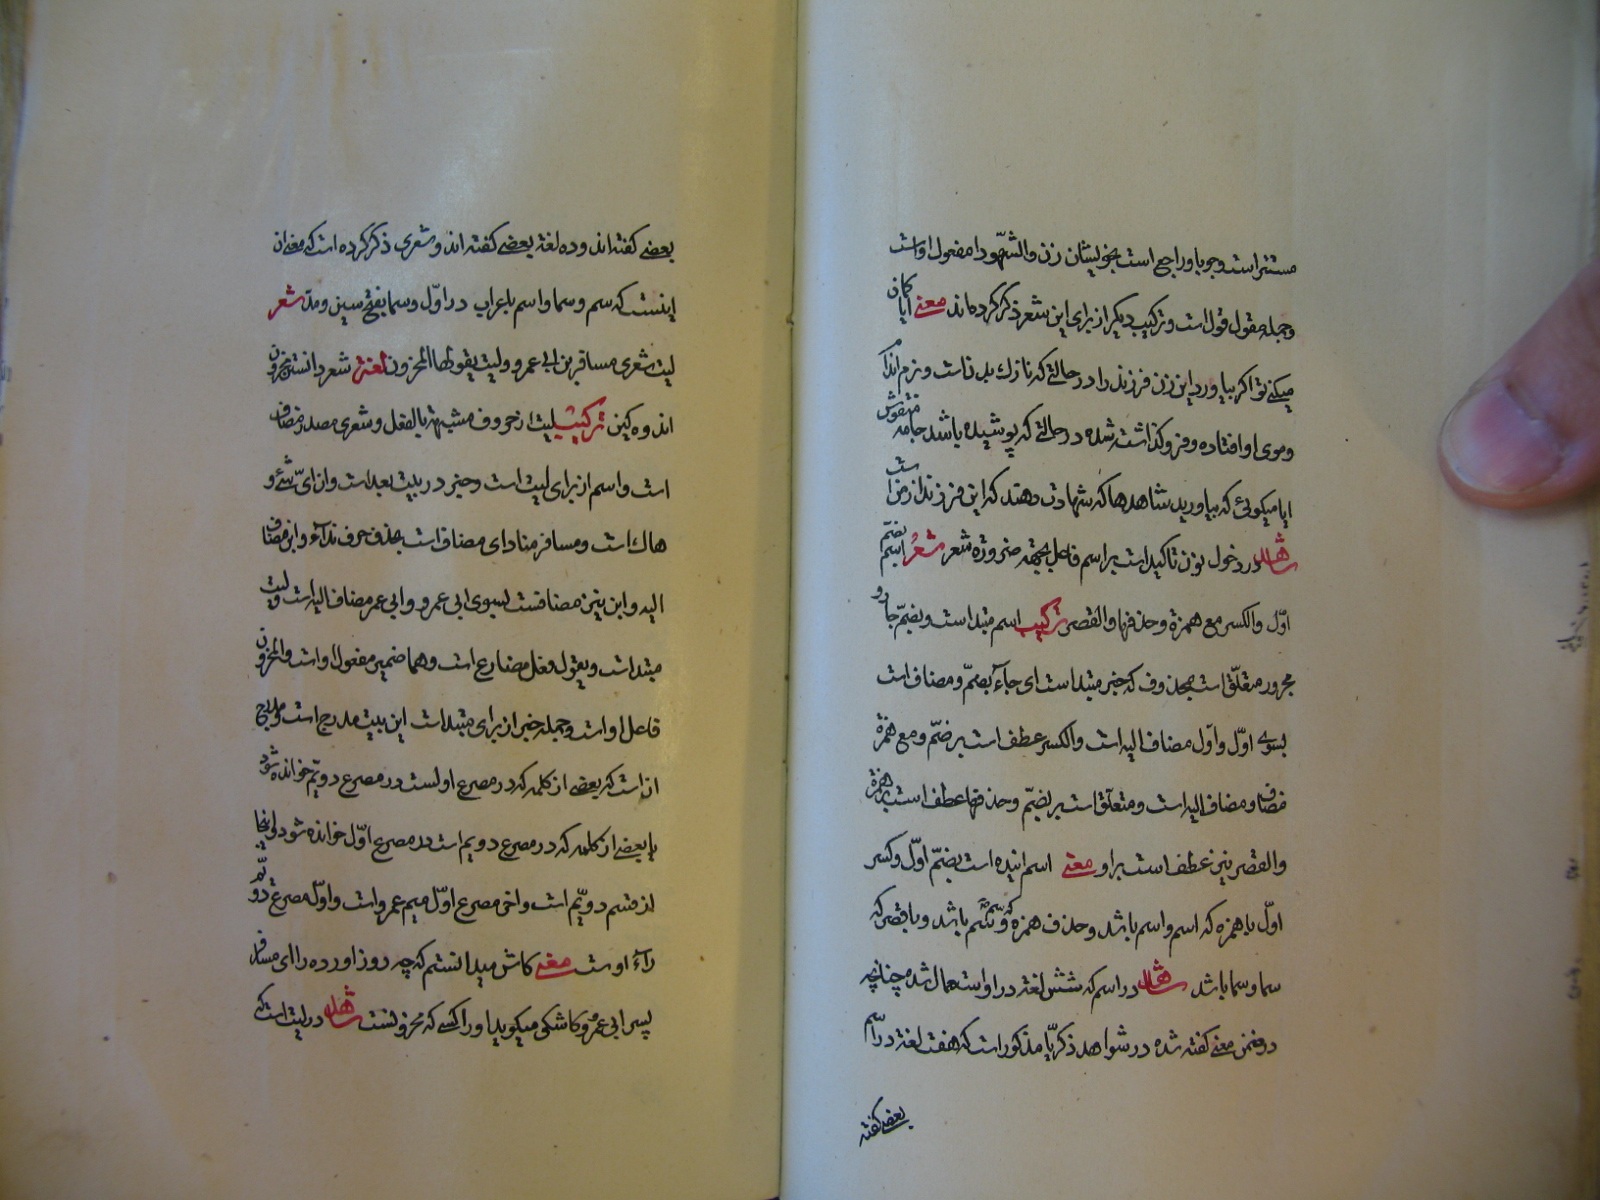 مستتر است وجوبا و راجع است بخویشان زن و الشهّودا مفعول اوست
وجمله مقول قول است و ترکیب دیکر از برای این شعر ذکر کرده‌اند معنے ایا کمان
میکنے تو اکر بیاورد این زن فرزند را در حالتے که نازك بدنست و نرم اندام
وموی او افتاده و فرو کذاشت شده در حالتے که پوشیده باشد جامه منقوش
ایا میکوئی که بیاورید شاهدها که شهادت دهند که این فرزند از من است
شاهد در دخول نون تاکید است بر اسم فاعل بجهة ضروره شعر شعرُ اسم بضمّ
اوّل والکسر مع همزة وحذفها والقصر ترکیب اسم مبتداست و بضمّ جار و
مجرور متعلّق است بمحذوف که خبر مبتداست ای جاءَ بضمّ و مضاف است
بسوے اوّل و اوّل مضاف الیه است والکسر عطف است بر ضمّ و مع همزة
مضاف و مضاف الیه است و متعلّق است بر بضمّ وحذفها عطف است بر همزة
والقصر نیز عطف است بر او معنے اسم اینده است بضمّ اوّل و کسر
اوّل با همزه که اسم و اسم باشد و حذف همزه که سم و سم باشد و با قصر که
سما و سما باشد شاهد در اسم که شش لغة در او استعمال شده چنانچه
در ضمن معنے کفته شده در شواهد ذکریّا مذکور است که هفت لغة در اسم
بعضے کفته
بعضے کفته‌اند و ده لغة بعضے کفته اند و شعری ذکر کرده است که معنے ان
اینست که سم و سما و اسم با عراب در اوّل و سما بفتح سین و مدّ شعر
لیت شعری مسافر بن ابی عمرو و لیت یقولها المحزون لغة شعر دانستن محزون
اندوه کین ترکیب لیت از حروف مشبهة بالفعل و شعری مصدر مضاف
است و اسم از برای لیت است و خبر در بیت بعد است و ان ایّ شئے و
هاك است و مسافر منادای مضاف است بحذف حرف نداء و ابن مضاف
الیه و ابن نیز مضافست بسوی ابی عمرو و ابی عمر مضاف الیه است و لیت
مبتداست و یقول فعل مضارع است و ها ضمیر مفعول اوست والمحزون
فاعل اوست و جمله خبر از برای مبتداست این بیت مدرج است و مدرج
ان است که بعضے از کلمه که در مصرع اولست در مصرع دویّم خوانده شود
یا بعضے از کلمه که در مصرع دویم است در مصرع اوّل خوانده شود اینجا
از قسم دویّم است و اخر مصرع اوّل میم عمر است و اوّل مصرع دویّم
راء اوست معنے کاش میدانستم که چه روز اورده را ای مسافر
پسر ابی عمرو کاشکی میکوید اورا کسے که محزونست شاهد در لیت است که